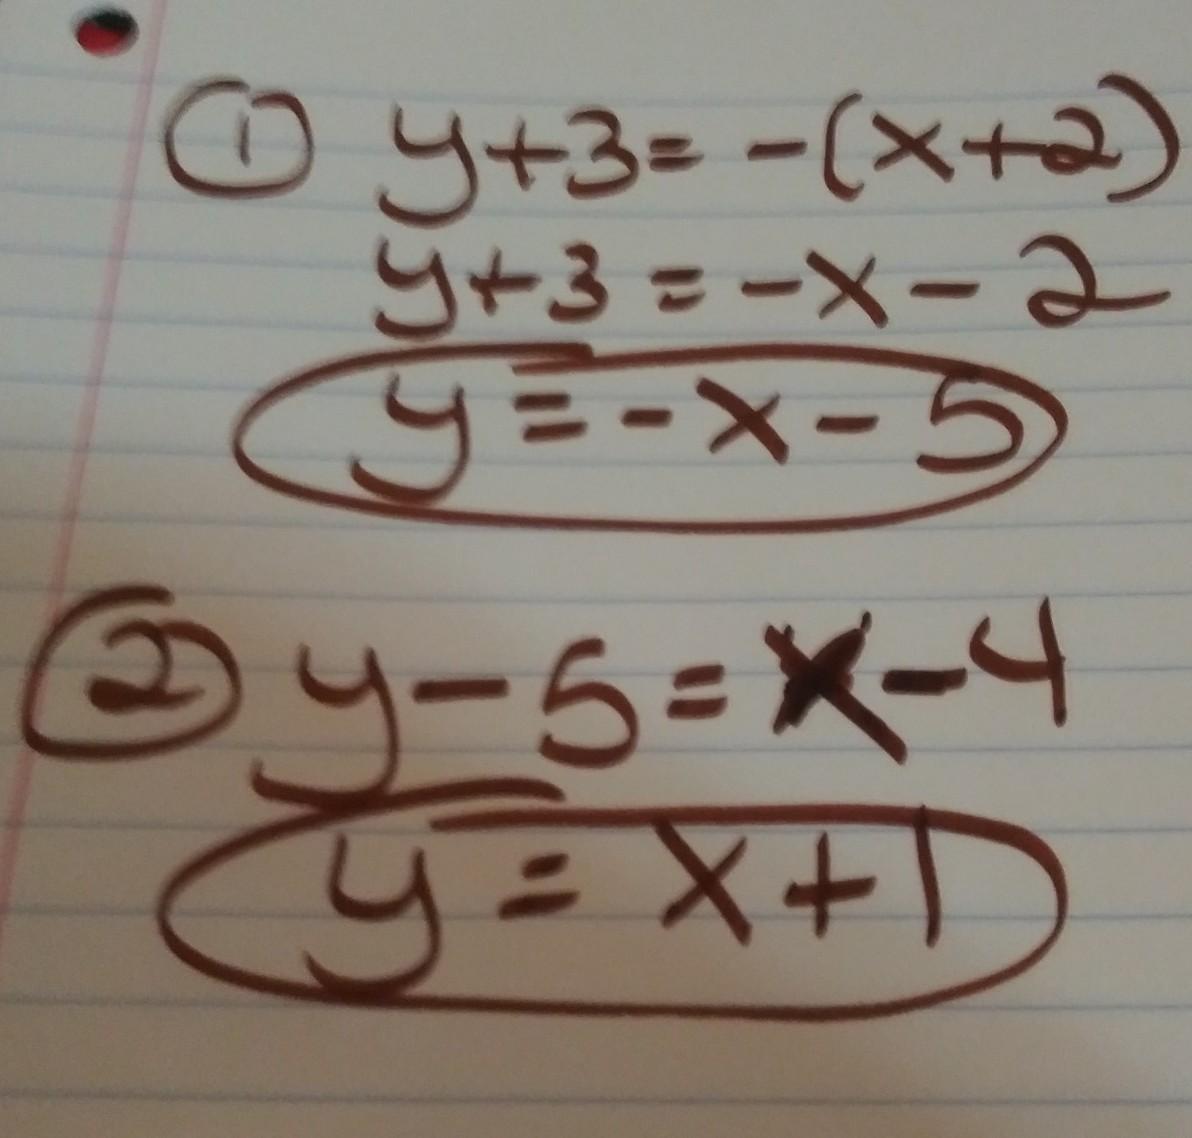 ① y+3= -(x+2)
y+3 = -x - 2
y = -x - 5
② y - 5 = x - 4
y = x + 1